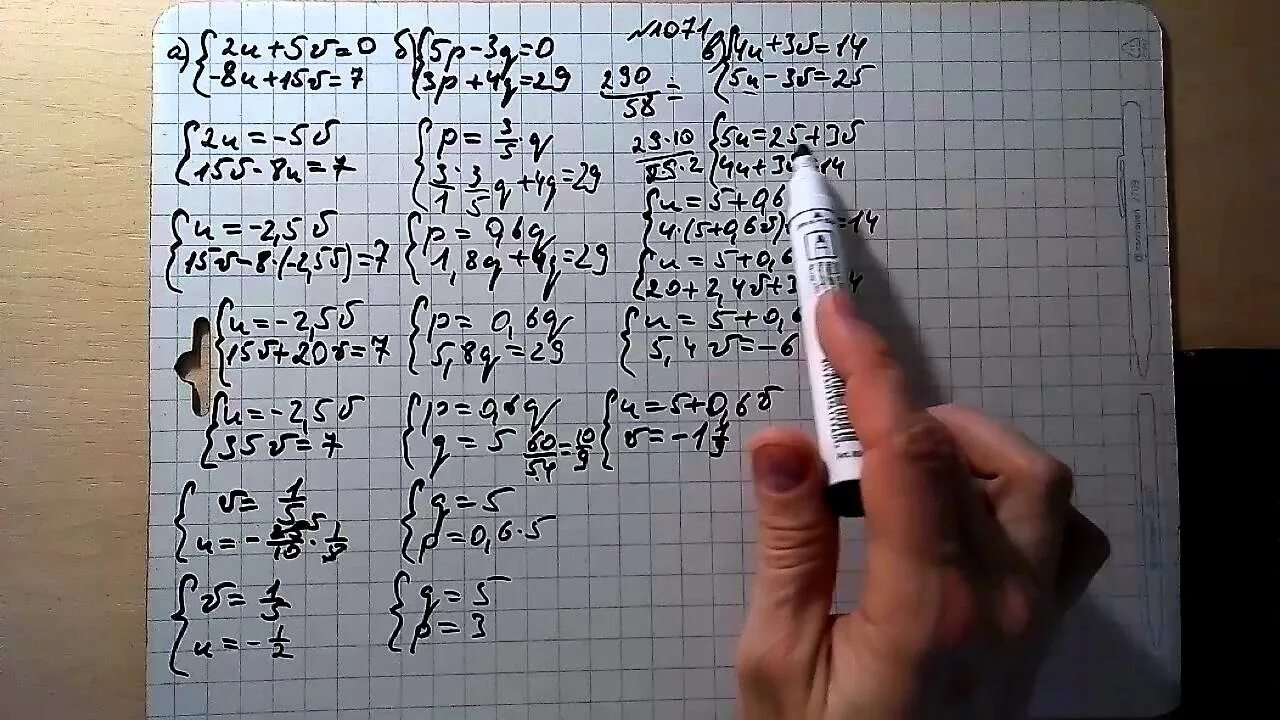 №1071
а) { 2u + 5v = 0
-8u + 15v = 7
{ 2u = -5v
15v - 8u = 7
{ u = -2,5v
15v - 8·(-2,5v) = 7
{ u = -2,5v
15v + 20v = 7
{ u = -2,5v
35v = 7
{ v = 1/5
u = - · 1/5
{ v = 1/5
u = - 1/2
б) { 5p - 3q = 0
3p + 4q = 29
{ p = 3/5 · q
3/1 · 3/5 q + 4q = 29
{ p = 0,6q
1,8q + 4q = 29
{ p = 0,6q
5,8q = 29
{ p = 0,6q
q = 5
{ q = 5
p = 0,6·5
{ q = 5
p = 3
290/58 =
29·10
60/54 = 10/9
в) { 4u + 3v = 14
5u - 3v = 25
{ 5u = 25 + 3v
4u + 3 14
{ u = 5 + 0,6
4·(5 + 0,6v) = 14
{ u = 5 + 0,6
20 + 2,4v + 3 4
{ u = 5 + 0,6
5,4v = -6
{ u = 5 + 0,6v
v = -1